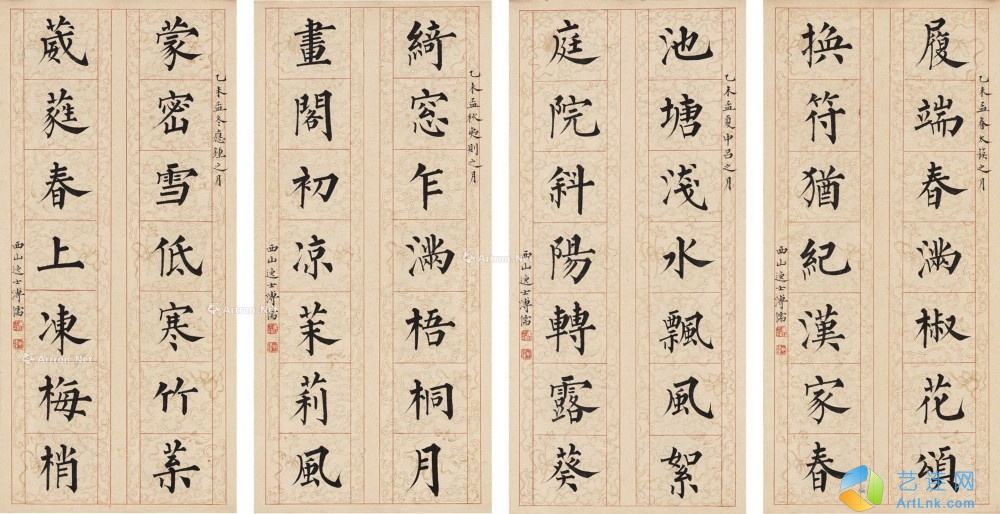 履端春滿椒花頌
乙未孟春太簇之月
換符猶紀漢家春
西山逸士溥儒
池塘淺水飄風絮
乙未孟夏中呂之月
庭院斜陽轉露葵
西山逸士溥儒
綺窓乍滿梧桐月
乙未孟秋夷則之月
畫閣初凉茉莉風
西山逸士溥儒
蒙密雪低寒竹葉
乙未孟冬應鍾之月
葳蕤春上凍梅梢
西山逸士溥儒
Artron.Net
Artron.Net
Artron.Net
Artron.Net
Artron.Net
艺连网
ArtLnk.com